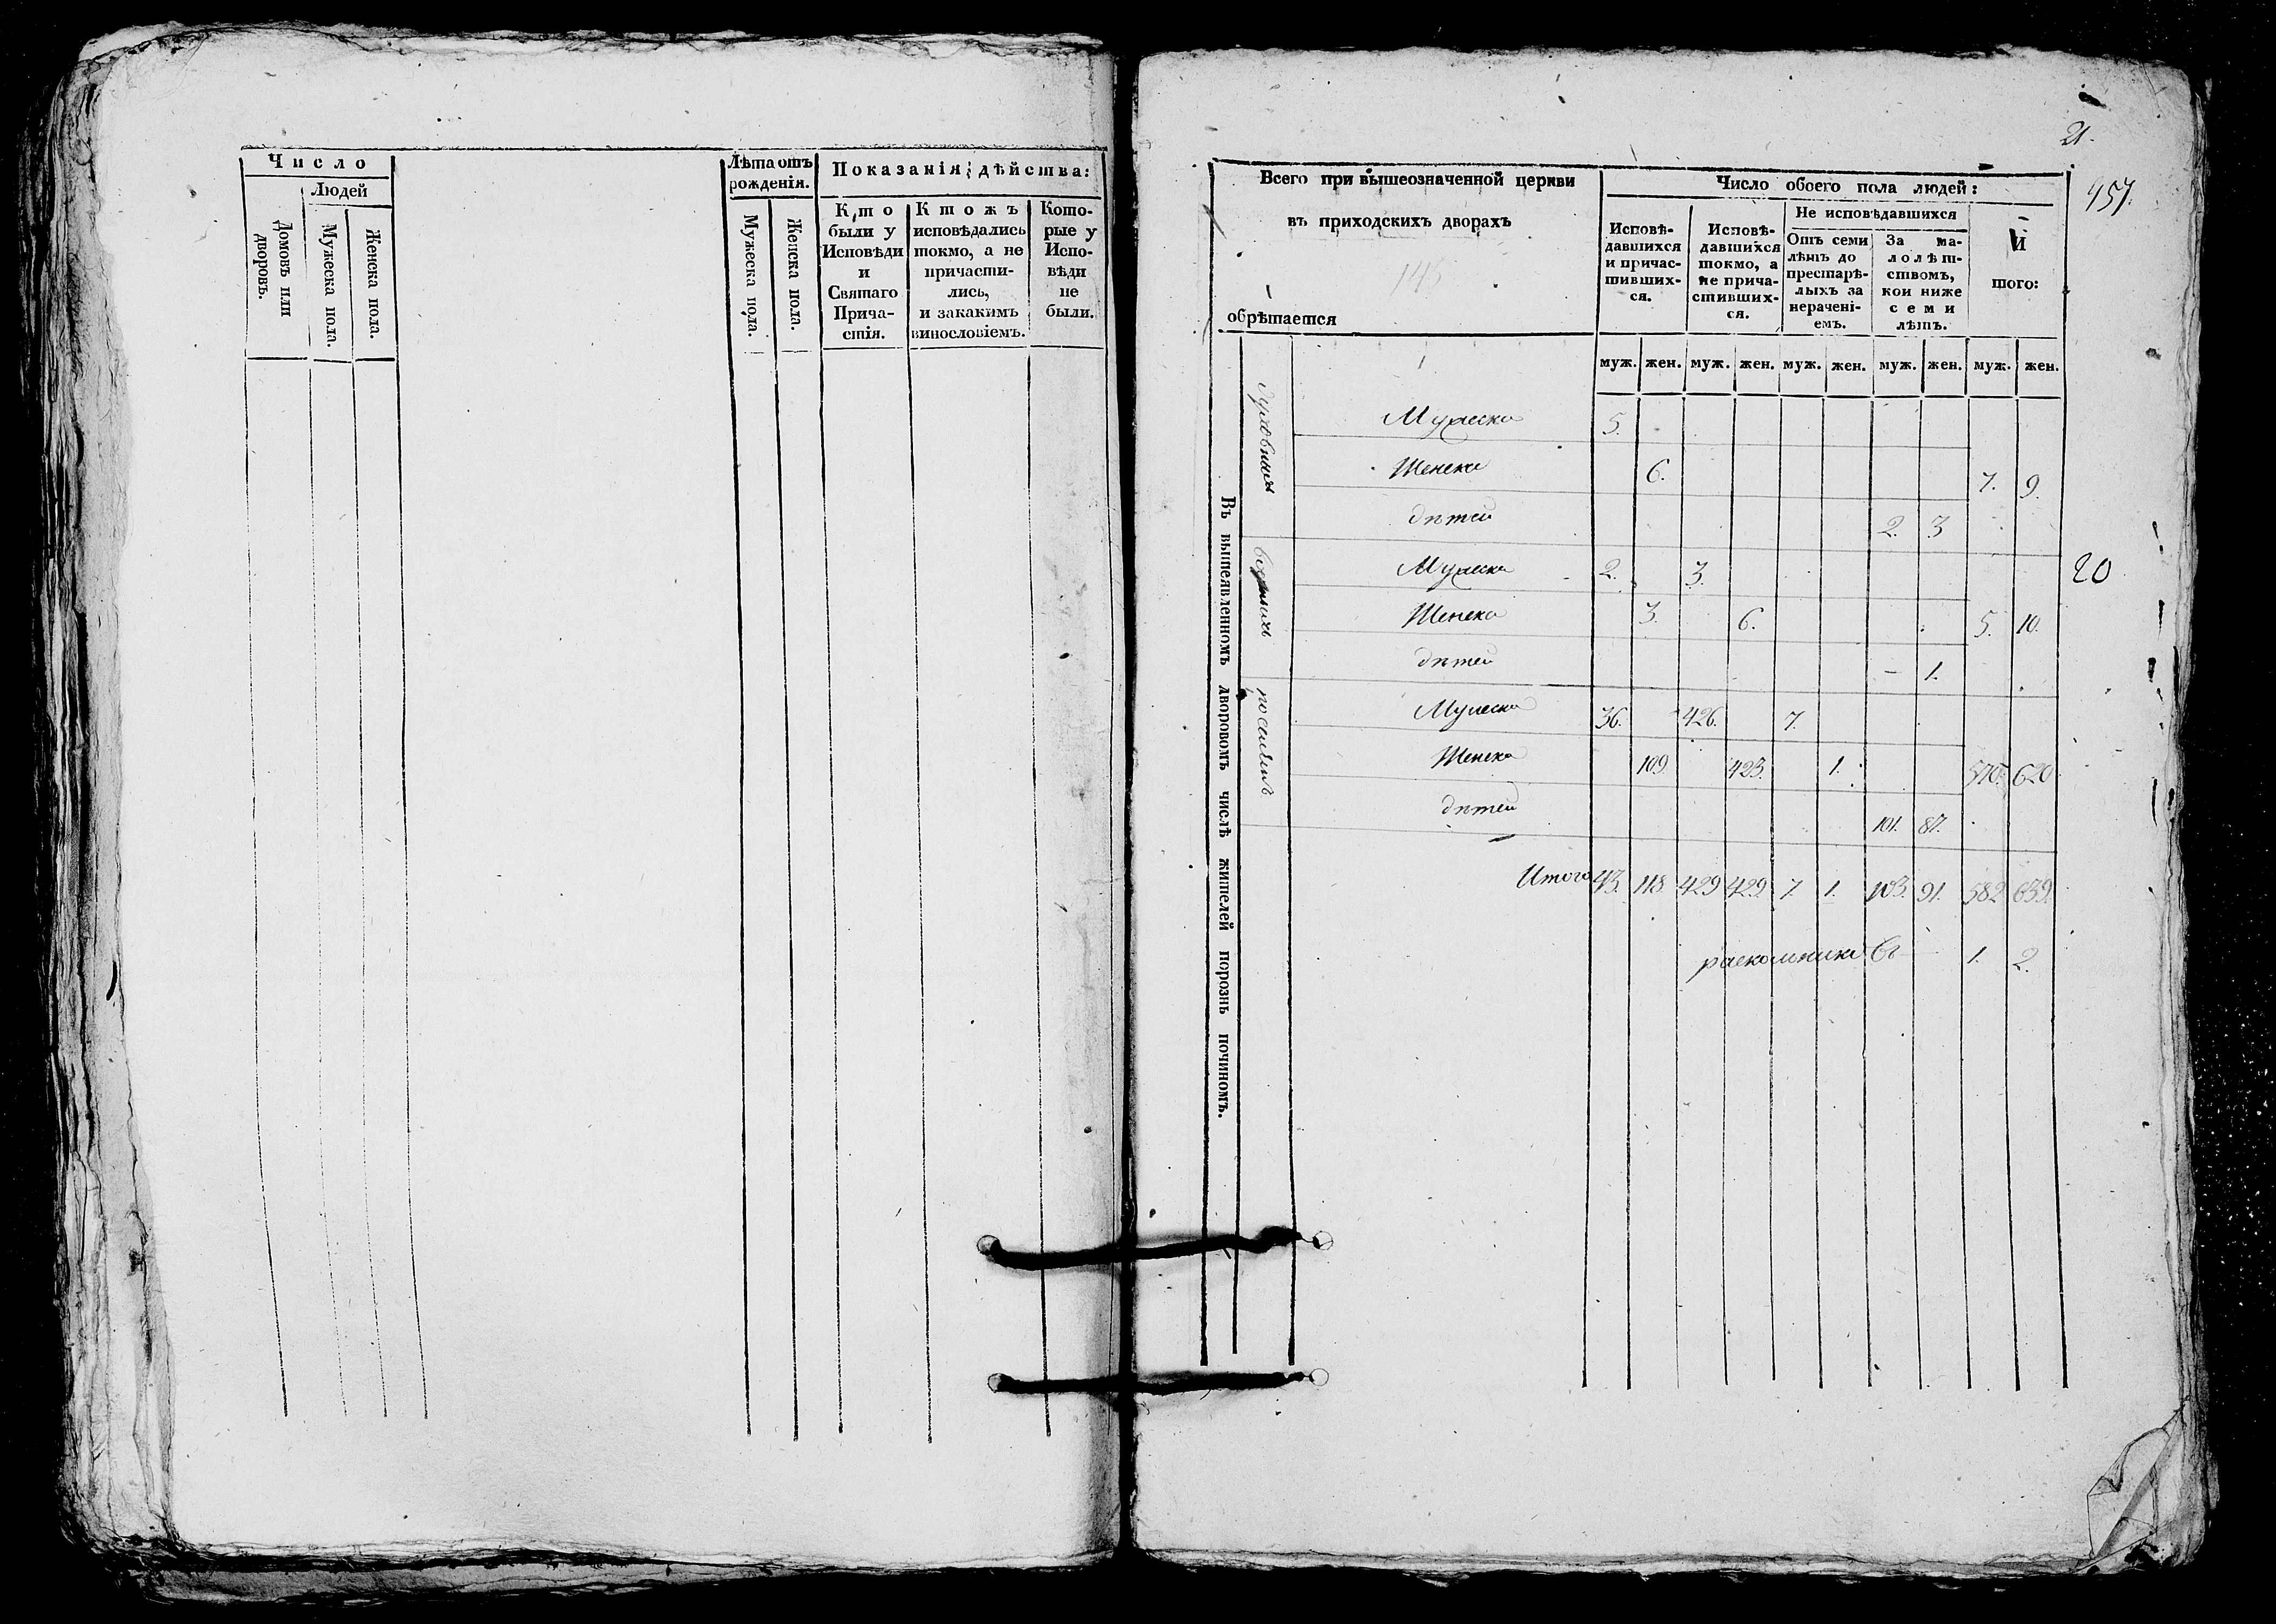 Число
Людей
Домовъ или дворовъ.
Мужеска пола.
Женска пола.
Лѣта отъ рожденія.
Мужеска пола.
Женска пола.
Показанія дѣйства:
Кто
были у
Исповѣди
и
Святаго
Прича-
стія.
Ктожъ
исповѣдались
токмо, а не
причасти-
лись,
и закакимъ
винословіемъ.
Кото-
рые у
Испо-
вѣди
не
были.
21.
457.
Всего при вышеозначенной церкви
въ приходскихъ дворахъ
145
обрѣтается
Число обоего пола людей:
Исповѣ-
давшихся
и причас-
тивших-
ся.
Исповѣ-
давшихся
токмо, а
не прича-
стивших-
ся.
Не исповѣдавшихся
Отъ семи
лѣтъ до
престарѣ-
лыхъ за
нерачені-
емъ.
За ма-
лолѣт-
ствомъ,
кои ниже
семи
лѣтъ.
И
того:
муж. жен. муж. жен. муж. жен. муж. жен. муж. жен.
Въ вышеявленномъ дворовомъ числѣ жителей порознь чиномъ.
духовныхъ
Мужеска 5.
Женска 6. 7. 9.
дѣтей 2. 3
20
Мужеска 2. 3.
Женска 3. 6. 5. 10.
дѣтей — 1.
Мужеска 36. 426. 7.
Женска 109. 423. 1. 570. 620
дѣтей 101. 87.
Итого 43. 118. 429 429. 7. 1. 103. 91. 582 639.
раскольниковъ — 1. 2.